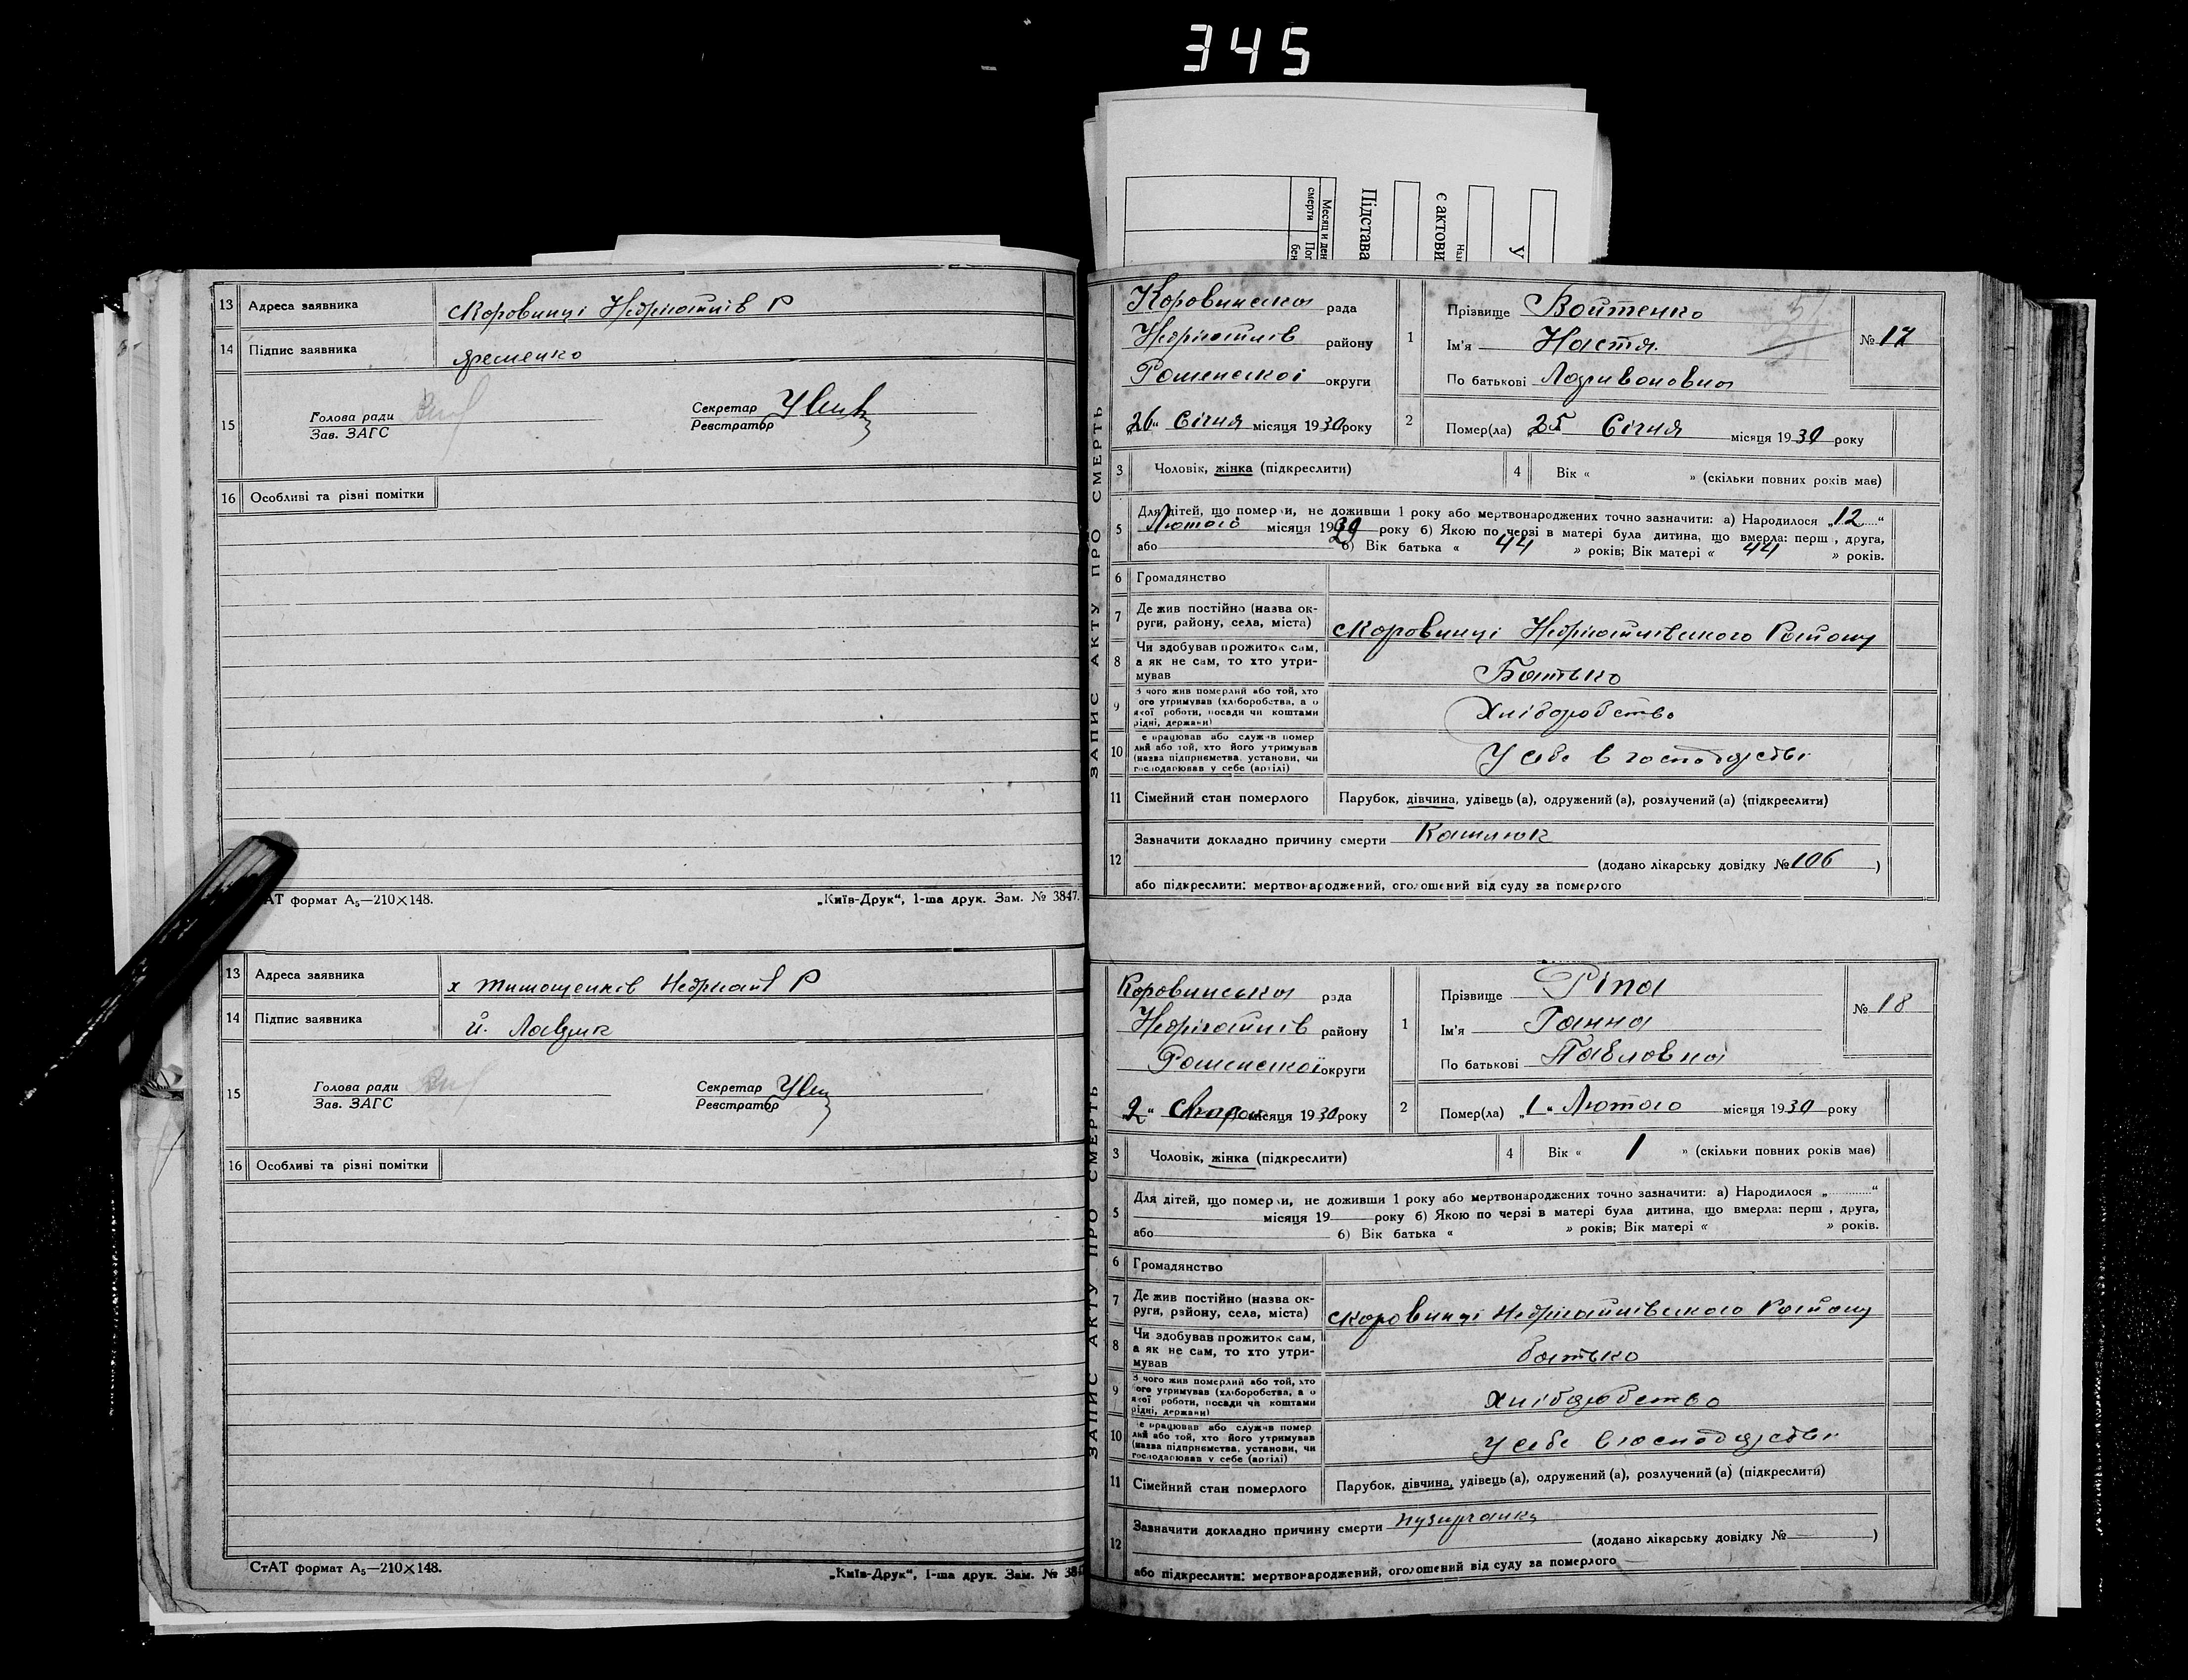 345
Месяц и ден
смерти
Підстава
є актови
У
13 Адреса заявника с Коровинці Недригайлів Р
14 Підпис заявника
15 Голова ради
Зав. ЗАГС
Секретар
Реєстратор
16 Особливі та різні помітки
АТ формат А₅—210×148.
„Київ-Друк“, 1-ша друк. Зам. № 3847.
13 Адреса заявника х Тимощенків Недригайл Р
14 Підпис заявника
15 Голова ради
Зав. ЗАГС
Секретар
Реєстратор
16 Особливі та різні помітки
СтАТ формат А₅—210×148.
„Київ-Друк“, 1-ша друк. Зам. № 384
ЗАПИС АКТУ ПРО СМЕРТЬ
Коровинська рада
Недригайлів району
Роменської округи
„26“ Січня місяця 1930 року
1 Прізвище Войтенко
Ім'я Настя
По батькові Ларивоновна
№ 17
2 Помер(ла) „25 Січня місяця 1930 року
3 Чоловік, жінка (підкреслити)
4 Вік « » (скільки повних років має)
5 Для дітей, що померли, не доживши 1 року або мертвонароджених точно зазначити: а) Народилося „12“
Лютого місяця 1929 року б) Якою по черзі в матері була дитина, що вмерла: перш , друга,
або б) Вік батька « 44 » років; Вік матері « 44 » років.
6 Громадянство
7 Де жив постійно (назва ок-
руги, району, села, міста) с Коровинці Недригайлівського Району
8 Чи здобував прожиток сам,
а як не сам, то хто утри-
мував Батько
9 З чого жив померлий або той, хто
ого утримував (хліборобства, а о
якої роботи, посади чи коштами
рідні, держави) Хліборобство
10 е працював або служив помер
лий або той, хто його утримував
(назва підприємства, установи, чи
господарював у себе (артілі) У себе в господарстві
11 Сімейний стан померлого Парубок, дівчина, удівець (а), одружений (а), розлучений (а) (підкреслити)
12 Зазначити докладно причину смерти Кашлюк
(додано лікарську довідку № 106 )
або підкреслити: мертвонароджений, оголошений від суду за померлого
ЗАПИС АКТУ ПРО СМЕРТЬ
Коровинська рада
Недригайлів району
Роменської округи
2 “ місяця 1930 року
1 Прізвище Ріпа
Ім'я Ганна
По батькові Павловна
№ 18
2 Помер(ла) „1“ Лютого місяця 1930 року
3 Чоловік, жінка (підкреслити)
4 Вік « 1 » (скільки повних років має)
5 Для дітей, що померли, не доживши 1 року або мертвонароджених точно зазначити: а) Народилося „ “
місяця 19 року б) Якою по черзі в матері була дитина, що вмерла: перш , друга,
або б) Вік батька « » років; Вік матері « » років.
6 Громадянство
7 Де жив постійно (назва ок-
руги, району, села, міста) с Коровинці Недригайлівського Району
8 Чи здобував прожиток сам,
а як не сам, то хто утри-
мував батько
9 З чого жив померлий або той, хто
ого утримував (хліборобства, а о
якої роботи, посади чи коштами
рідні, держави) Хліборобство
10 е працював або служив помер
лий або той, хто його утримував
(назва підприємства, установи, чи
господарював у себе (артілі) У себе в господарстві
11 Сімейний стан померлого Парубок, дівчина, удівець (а), одружений (а), розлучений (а) (підкреслити)
12 Зазначити докладно причину смерти
(додано лікарську довідку № )
або підкреслити: мертвонароджений, оголошений від суду за померлого